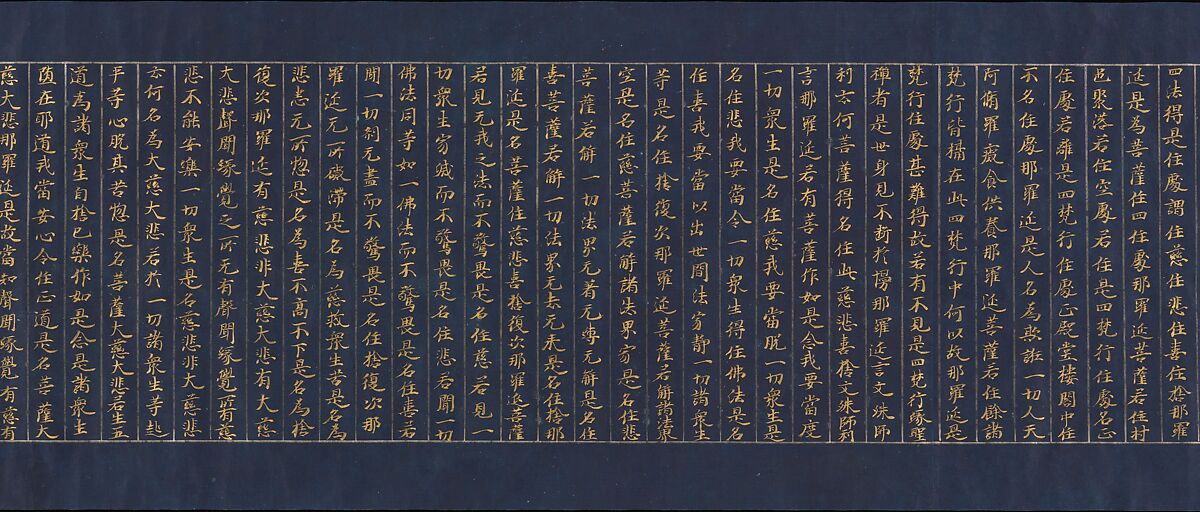 四法得是住處謂住慈住悲住喜住捨那羅
延是為菩薩住四住處那羅延菩薩若住村
邑聚落若住空處若住是四梵行住處名正
住處若離是四梵行住處正殿堂樓閣中住
不名住處那羅延是人名為欺誑一切人天
阿脩羅癡食供養那羅延菩薩若住餘諸
梵行皆攝在此四梵行中何以故那羅延是
梵行住處甚難得故若有不見是四梵行緣聖
種者是世身見不斷於愣那羅延言文殊師
利云何菩薩得名住此慈悲喜捨文殊師利
言那羅延若有菩薩作如是念我要當度
一切眾生是名住慈我要當脫一切眾生是
名住悲我要當令一切眾生得住佛法是名
住喜我要當以出世間法穷靜一切諸眾生
等是名住捨復次那羅延菩薩若解諸法界
空是名住慈菩薩若解諸法界穷是名住悲
菩薩若解一切法界无著无縛无解是名住
喜菩薩若解一切法界无去无来是名住捨那
羅延是名菩薩住慈悲喜捨復次那羅延菩薩
若見无我之法而不驚畏是名住慈若見一
切眾生穷滅而不驚畏是名住悲若聞一切
佛法同等如一佛法而不驚畏是名住喜若
聞一切剎无盡而不驚畏是名住捨復次那
羅延无所礙滯是名為慈救眾生苦是名為
悲患无所惚是名為喜不高不下是名為捨
復次那羅延有慈悲非大慈大悲有大慈
大悲聲聞緣覺之所无有聲聞緣覺所有慈
悲不能安樂一切眾生是名慈悲非大慈悲
云何名為大慈大悲若於一切諸眾生等起
平等心脫其苦惚是名菩薩大慈大悲若生五
道為諸眾生自捨己樂作如是念是諸眾生
陷在耶道我當安心令住正道是名菩薩大
慈大悲那羅延是故當知聲聞緣覺有慈有